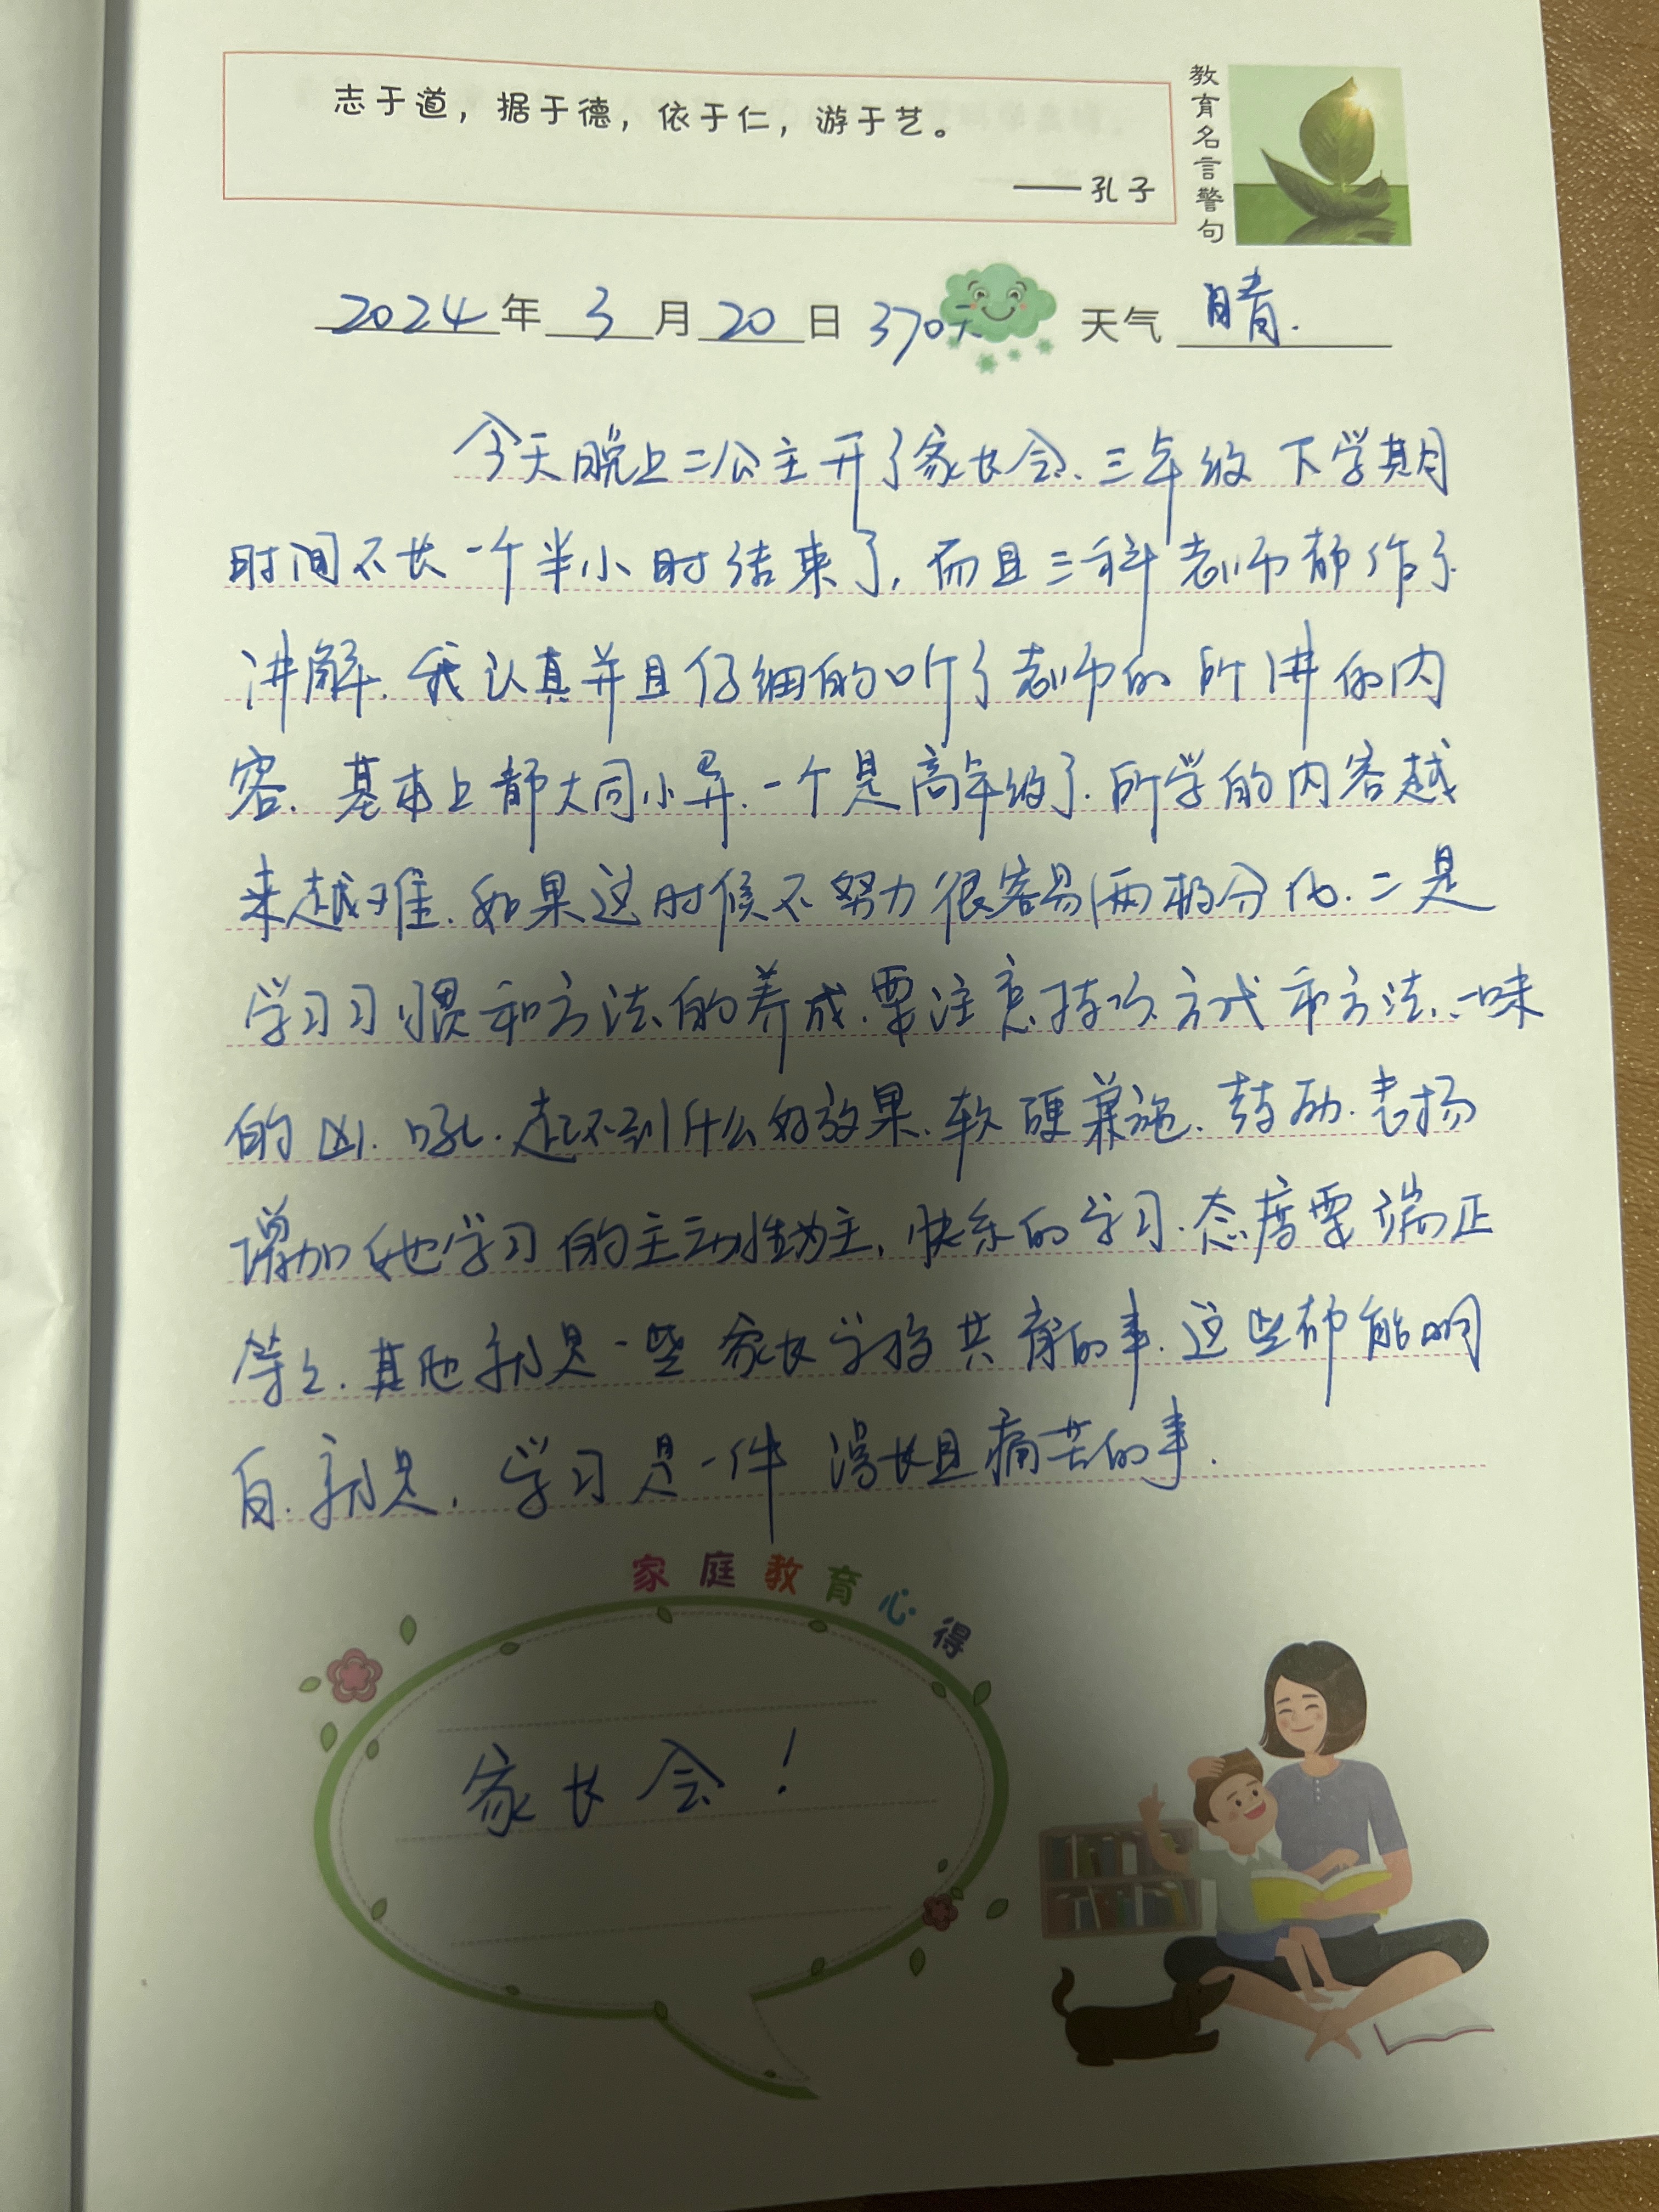 志于道，据于德，依于仁，游于艺。
——孔子
教育名言警句
2024年3月20日 370天 天气 晴.
今天晚上二公主开了家长会.三年级下学期
时间不长一个半小时结束了,而且三科老师都作了
讲解.我认真并且仔细的听了老师的所讲的内
容.基本上都大同小异.一个是高年级了.所学的内容越
来越难.如果这时候不努力很容易两极分化.二是
学习习惯和方法的养成.要注意技巧方式和方法.一味
的凶.吼.起不到什么好效果.软硬兼施.鼓励.表扬
增加她学习的主动性为主,快乐的学习.态度要端正
等等.其他就是一些家长学校共育的事.这些都能明
白.就是,学习是一件漫长且痛苦的事.
家庭教育心得
家长会!